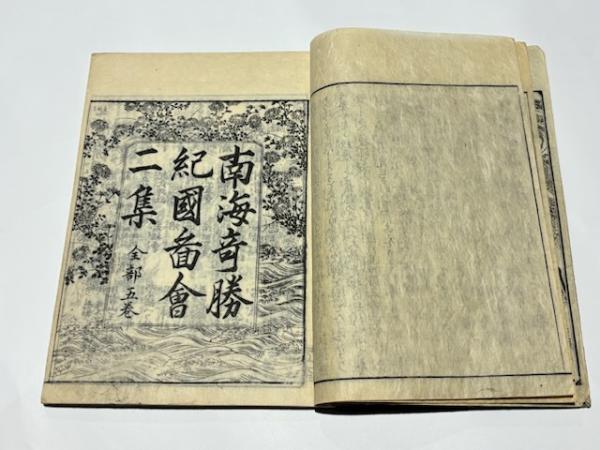 南海奇勝
紀國畨會
二集 全部五巻